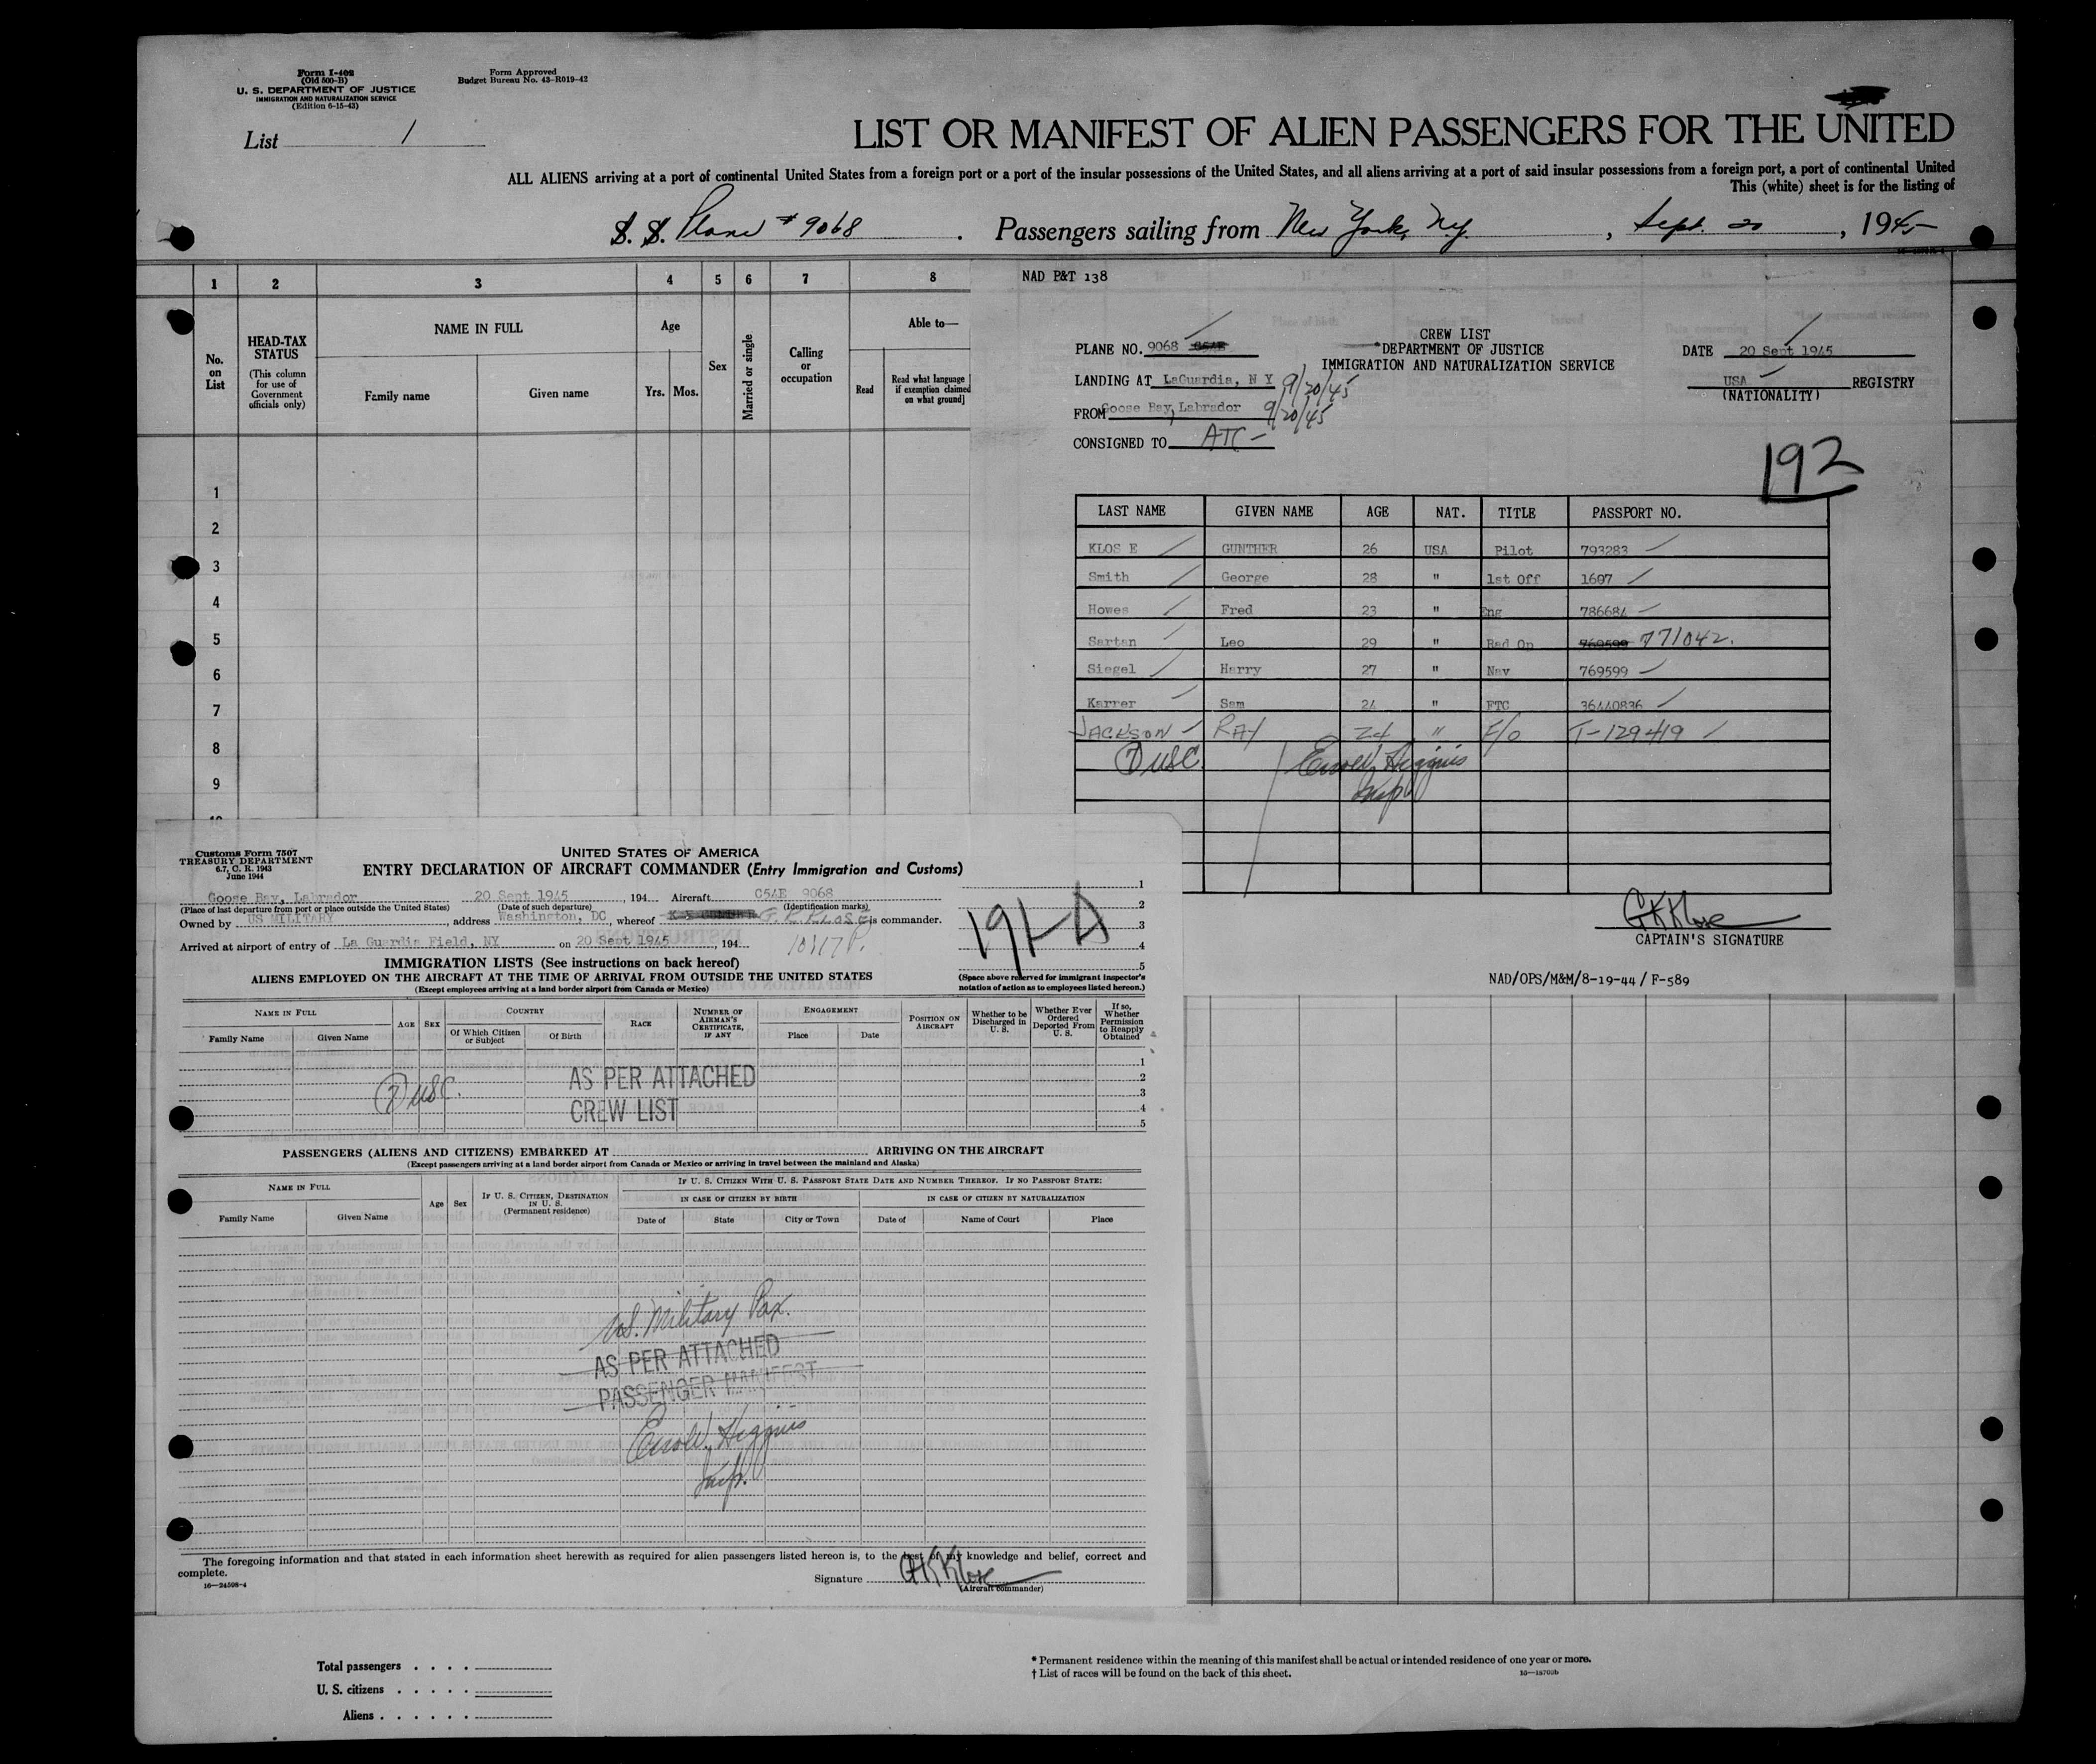 Form I-402
(Old 500-B)
U. S. DEPARTMENT OF JUSTICE
IMMIGRATION AND NATURALIZATION SERVICE
(Edition 6-15-43)
Form Approved
Budget Bureau No. 43-R019-42
List 1
LIST OR MANIFEST OF ALIEN PASSENGERS FOR THE UNITED
ALL ALIENS arriving at a port of continental United States from a foreign port or a port of the insular possessions of the United States, and all aliens arriving at a port of said insular possessions from a foreign port, a port of continental United
This (white) sheet is for the listing of
S. S. Plane # 9068 . Passengers sailing from New York, Ny. , Sept. 20 , 1945
1 2 3 4 5 6 7 8
No. on List
HEAD-TAX STATUS
(This column for use of Government officials only)
NAME IN FULL
Family name Given name
Age
Yrs. Mos.
Sex
Married or single
Calling or occupation
Able to—
Read
Read what language [if exemption claimed on what ground]
1
2
3
4
5
6
7
8
9
NAD P&T 138
CREW LIST
PLANE NO. 9068 DEPARTMENT OF JUSTICE DATE 20 Sept 1945
IMMIGRATION AND NATURALIZATION SERVICE
LANDING AT LaGuardia, N Y 9/20/45 USA REGISTRY
(NATIONALITY)
FROM Goose Bay, Labrador 9/20/45
CONSIGNED TO ATC
192
LAST NAME GIVEN NAME AGE NAT. TITLE PASSPORT NO.
KLOS E GUNTHER 26 USA Pilot 793283
Smith George 28 " 1st Off 1697
Howes Fred 23 " Eng 786684
Sartan Leo 29 " Rad Op 769599 771042.
Siegel Harry 27 " Nav 769599
Karrer Sam 24 " FTC 36440836
JACKSON RAY 24 " F/O T-129419
(7) USC Errol Higgins
Insp
GKKlose
CAPTAIN'S SIGNATURE
NAD/OPS/M&M/8-19-44 / F-589
Customs Form 7507
TREASURY DEPARTMENT
6.7, C. R. 1943
June 1944
UNITED STATES OF AMERICA
ENTRY DECLARATION OF AIRCRAFT COMMANDER (Entry Immigration and Customs)
Goose Bay, Labrador 20 Sept 1945 , 194 Aircraft C54E 9068
(Place of last departure from port or place outside the United States) (Date of such departure) (Identification marks)
Owned by US MILITARY , address Washington, DC whereof G. K. KLOSE is commander.
Arrived at airport of entry of La Guardia Field, NY on 20 Sept 1945 , 194 1017 P.
1
2
3
4
5
191-A
(Space above reserved for immigrant inspector's notation of action as to employees listed hereon.)
IMMIGRATION LISTS (See instructions on back hereof)
ALIENS EMPLOYED ON THE AIRCRAFT AT THE TIME OF ARRIVAL FROM OUTSIDE THE UNITED STATES
(Except employees arriving at a land border airport from Canada or Mexico)
NAME IN FULL
Family Name Given Name
AGE SEX
COUNTRY
Of Which Citizen or Subject Of Birth
RACE
NUMBER OF AIRMAN'S CERTIFICATE, IF ANY
ENGAGEMENT
Place Date
POSITION ON AIRCRAFT
Whether to be Discharged in U. S.
Whether Ever Ordered Deported From U. S.
If so, Whether Permission to Reapply Obtained
1
2
3
4
5
(7) USC.
AS PER ATTACHED
CREW LIST
PASSENGERS (ALIENS AND CITIZENS) EMBARKED AT ARRIVING ON THE AIRCRAFT
(Except passengers arriving at a land border airport from Canada or Mexico or arriving in travel between the mainland and Alaska)
NAME IN FULL
Family Name Given Name
Age Sex
IF U. S. CITIZEN, DESTINATION IN U. S.
(Permanent residence)
IF U. S. CITIZEN WITH U. S. PASSPORT STATE DATE AND NUMBER THEREOF. IF NO PASSPORT STATE:
IN CASE OF CITIZEN BY BIRTH IN CASE OF CITIZEN BY NATURALIZATION
Date of State City or Town Date of Name of Court Place
US. Military Pax.
AS PER ATTACHED
PASSENGER MANIFEST
Errol Higgins
Insp.
The foregoing information and that stated in each information sheet herewith as required for alien passengers listed hereon is, to the best of my knowledge and belief, correct and
complete.
16—24598-4
Signature GKKlose
(Aircraft commander)
Total passengers . . . .
U. S. citizens . . . . .
Aliens . . . . . .
* Permanent residence within the meaning of this manifest shall be actual or intended residence of one year or more.
† List of races will be found on the back of this sheet.